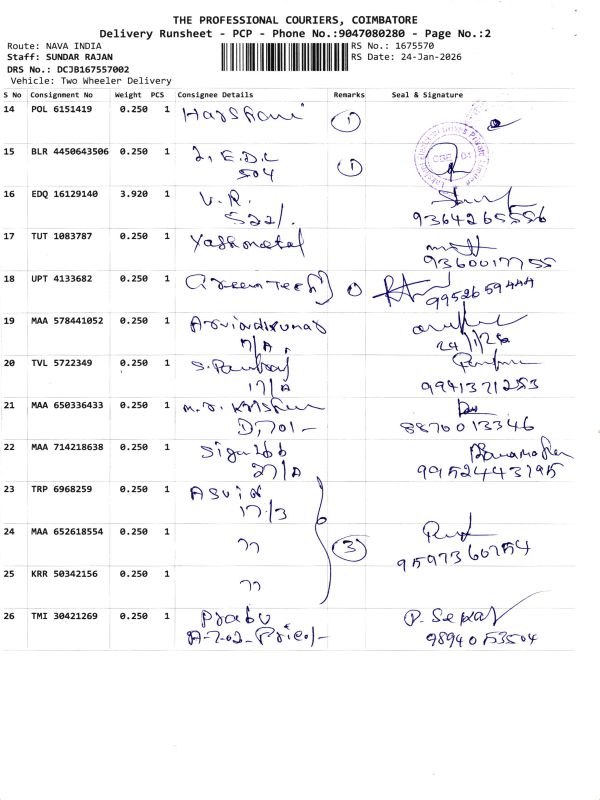 THE PROFESSIONAL COURIERS, COIMBATORE
Delivery Runsheet - PCP - Phone No.:9047080280 - Page No.:2
Route: NAVA INDIA
Staff: SUNDAR RAJAN
DRS No.: DCJB167557002
Vehicle: Two Wheeler Delivery
RS No.: 1675570
RS Date: 24-Jan-2026
S No Consignment No Weight PCS Consignee Details Remarks Seal & Signature
14 POL 6151419 0.250 1 Harshani 1
15 BLR 4450643506 0.250 1 1
504
16 EDQ 16129140 3.920 1 V.R.
522/. 9364265556
17 TUT 1083787 0.250 1
9360017755
18 UPT 4133682 0.250 1 GreenTech
9952659444
19 MAA 578441052 0.250 1 Arvindkumar
7/A, 24/1/26
20 TVL 5722349 0.250 1
17/A 9941371253
21 MAA 650336433 0.250 1
D,701- 8870013346
22 MAA 714218638 0.250 1
27/A 9952443195
23 TRP 6968259 0.250 1 Asvin
17/3
24 MAA 652618554 0.250 1 " 3
9597360754
25 KRR 50342156 0.250 1 "
26 TMI 30421269 0.250 1 Prabu P. Sekar
A-702- Pricol- 9894053504